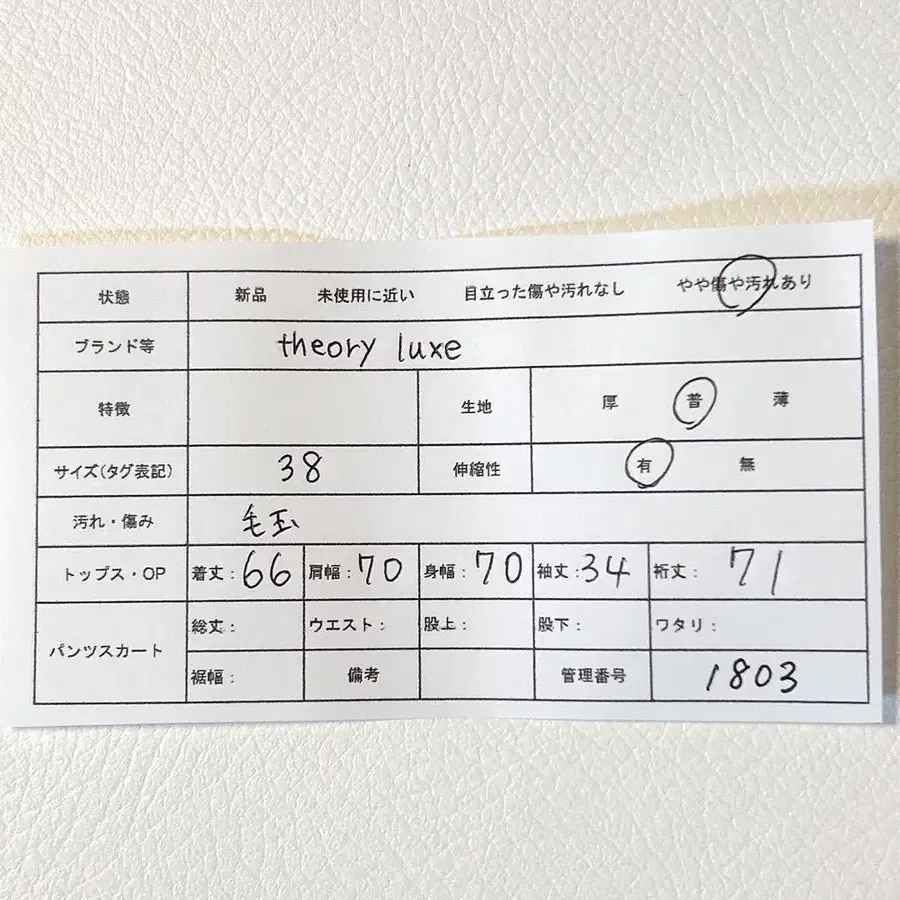 状態 新品 未使用に近い 目立った傷や汚れなし やや傷や汚れあり
ブランド等 theory luxe
特徴 生地 厚 普 薄
サイズ(タグ表記) 38 伸縮性 有 無
汚れ・傷み 毛玉
トップス・OP 着丈:66 肩幅:70 身幅:70 袖丈:34 裄丈: 71
パンツスカート 総丈: ウエスト: 股上: 股下: ワタリ:
裾幅: 備考 管理番号 1803